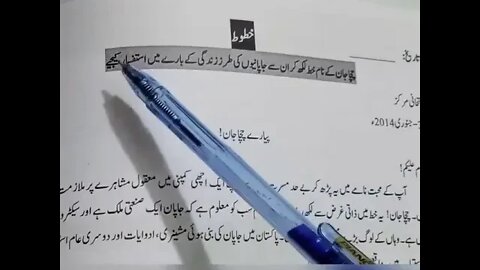 خطوط
چچا جان کے نام خط لکھ کر ان سے جاپانیوں کی طرز زندگی کے بارے میں استفسار کیجیے
تاریخ:
مرکز
جنوری 2014ء
پیارے چچا جان!
علیکم!
آپ کے محبت نامے میں یہ پڑھ کر بے حد مسرت ایک اچھی کمپنی میں معقول مشاہرے پر ملازمت
چچا جان! یہ خط میں ذاتی غرض سے لکھ سب کو معلوم ہے کہ جاپان ایک صنعتی ملک ہے اور سیکڑوں
ہے۔ وہاں کے لوگ بڑے پاکستان میں جاپان کی بنی ہوئی مشینری، ادویات اور دوسری عام